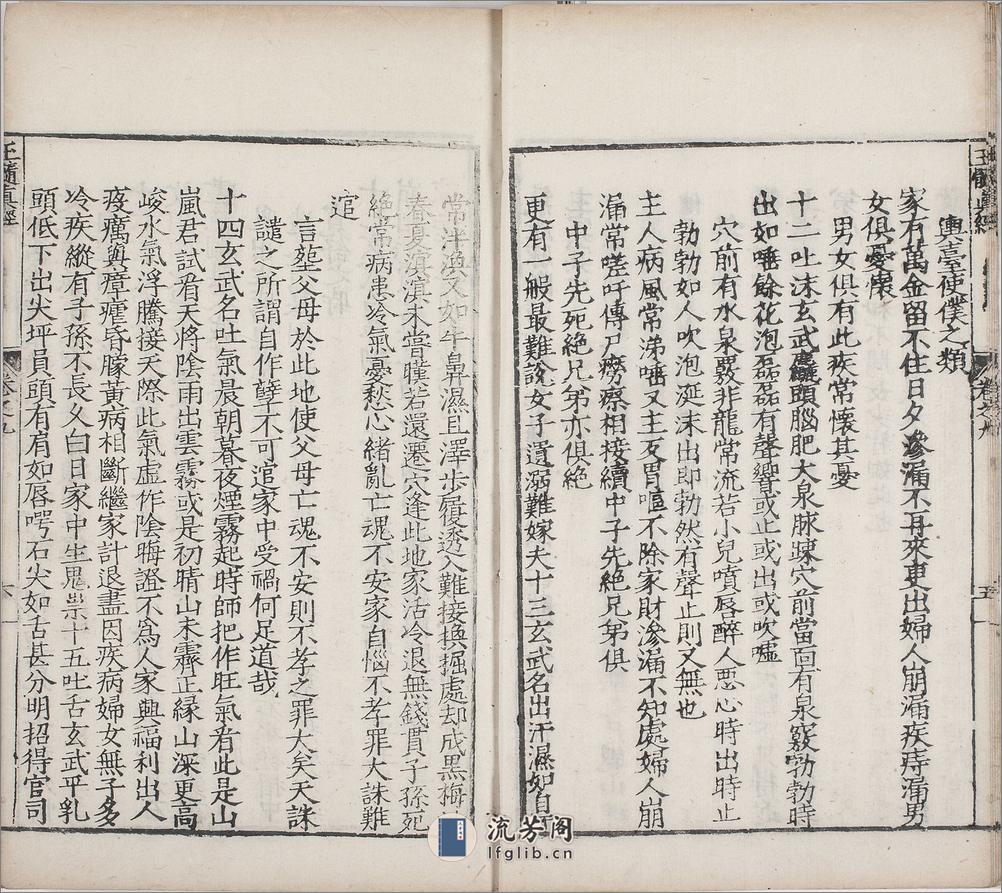 輿臺使僕之類
家有萬金留不住日夕滲漏不再來更出婦人崩漏疾痔漏男
女俱憂懷
男女俱有此疾常懷其憂
十二吐沫玄武麤頭腦肥大泉脉疎穴前當面有泉竅勃勃時
出如唾餘花泡磊磊有聲響或止或出或吹噓
穴前有水泉竅非龍常流若小兒噴唇醉人惡心時出時止
勃勃如人吹泡涎沫出即勃然有聲止則又無也
主人病風常涕唾又主反胃嘔不除家財滲漏不知處婦人崩
漏常嗟吁傳尸癆瘵相接續中子先絕兄弟俱
中子先死絕兄弟亦俱絕
更有一般最難說女子遺溺難嫁夫十三玄武名出汗濕如自
玉髓真經
卷之九
五
常泮渙又如牛鼻濕且澤步履透入難接換掘處却成黑梅
春夏滇滇未嘗暵若還遷穴逢此地家活冷退無錢貫子孫死
絕常病患冷氣憂愁心緒亂亡魂不安家自惱不孝罪大誅難
逭
言塟父母於此地使父母亡魂不安則不孝之罪大矣天誅
譴之所謂自作孽不可逭家中受禍何足道哉
十四玄武名吐氣晨朝暮夜煙霧起時師把作旺氣者此是山
嵐君試看天將陰雨出雲霧或是初晴山未霽正緣山深更高
峻水氣浮騰接天際此氣虛作陰晦證不爲人家興福利出人
疫癘與瘴瘧昏朦黃病相斷繼家計退盡因疾病婦女無子多
冷疾縱有子孫不長久白日家中生鬼祟十五吐舌玄武平乳
頭低下出尖坪員頭有肩如唇咢石尖如舌甚分明招得官司
玉髓真經
卷之九
六
流芳阁
lfglib.cn